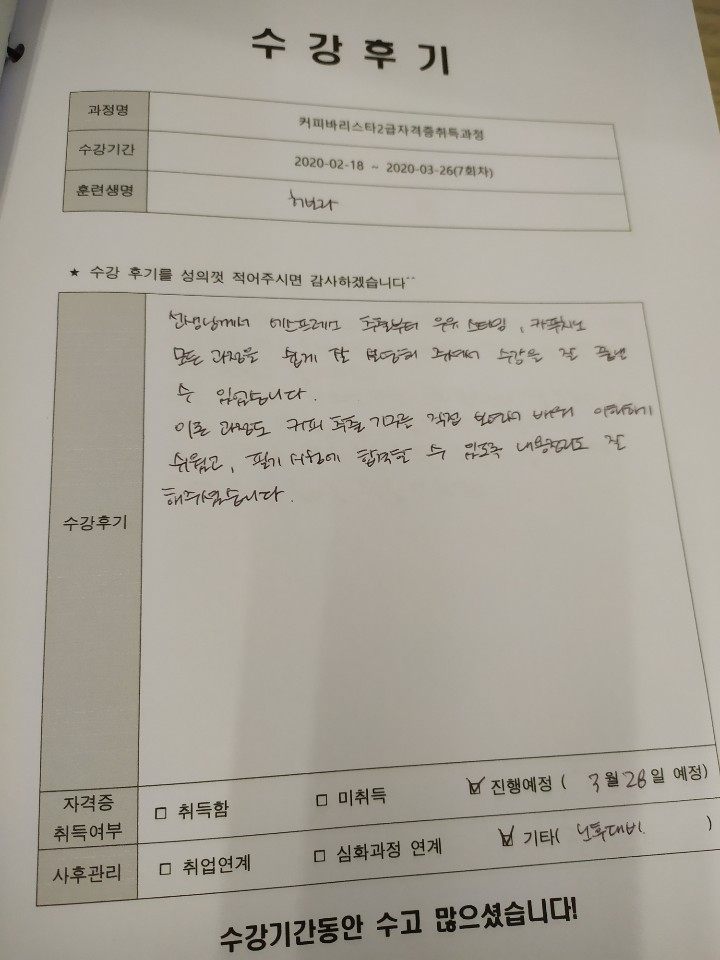 수강후기
과정명 커피바리스타2급자격증취득과정
수강기간 2020-02-18 ~ 2020-03-26(7회차)
훈련생명
★ 수강 후기를 성의껏 적어주시면 감사하겠습니다~~
수강후기
선생님께서 에스프레소 추출부터 우유 스티밍, 카푸치노
모든 과정을 쉽게 잘 보여주셔서 수강을 잘 끝낼
수 있었습니다.
이론 과정도 커피 추출 기구를 직접 보면서 배워 이해하기
쉬웠고, 필기 시험에 합격할 수 있도록 내용정리도 잘
해주셨습니다.
자격증 취득여부 □ 취득함 □ 미취득 ☑ 진행예정 ( 3월 28일 예정)
사후관리 □ 취업연계 □ 심화과정 연계 ☑ 기타( 노후대비. )
수강기간동안 수고 많으셨습니다!